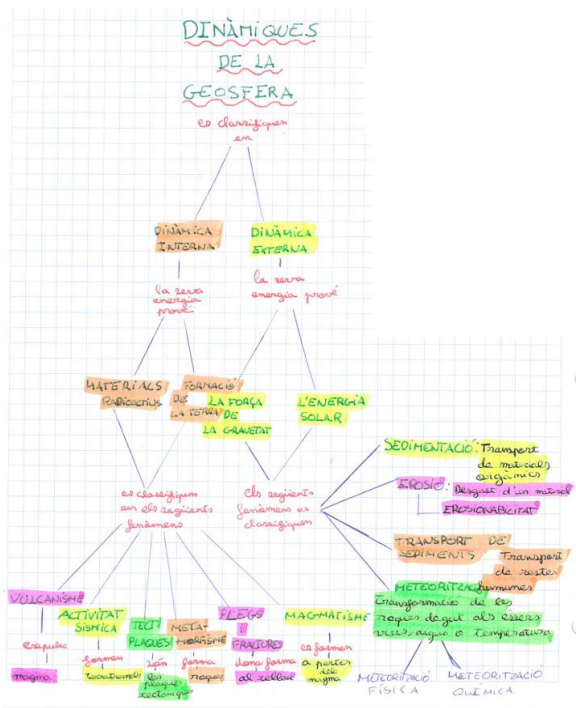 DINÀMIQUES
DE LA
GEOSFERA
es classifiquen
en
DINÀMICA
INTERNA
DINÀMICA
EXTERNA
la seva
energia
prové
la seva
energia prové
MATERIALS
RADIOACTIUS
FORMACIÓ
DE
LA TERRA
LA FORÇA
DE
LA GRAVETAT
L'ENERGIA
SOLAR
es classifiquen
en els següents
fenòmens
Els següents
fenòmens es
classifiquen
SEDIMENTACIÓ: Transport
de materials
orgànics
EROSIÓ: Desgast d'un material
EROSIONABILITAT
TRANSPORT DE
SEDIMENTS
Transport
de restes
humanes
METEORITZACIÓ
Transformació de les
roques degut als essers
vius, aigua o temperatura
METEORITZACIÓ
FÍSICA
METEORITZACIÓ
QUÍMICA
VULCANISME
expulsa
magma
ACTIVITAT
SÍSMICA
formen
terratrèmols
TECT
PLAQUES
són
les
plaques
tectòniques
META-
MORFISME
forma
roques
PLECS
I
FRACTURES
dona forma
al relleu
MAGMATISME
es formen
a partir
del
magma